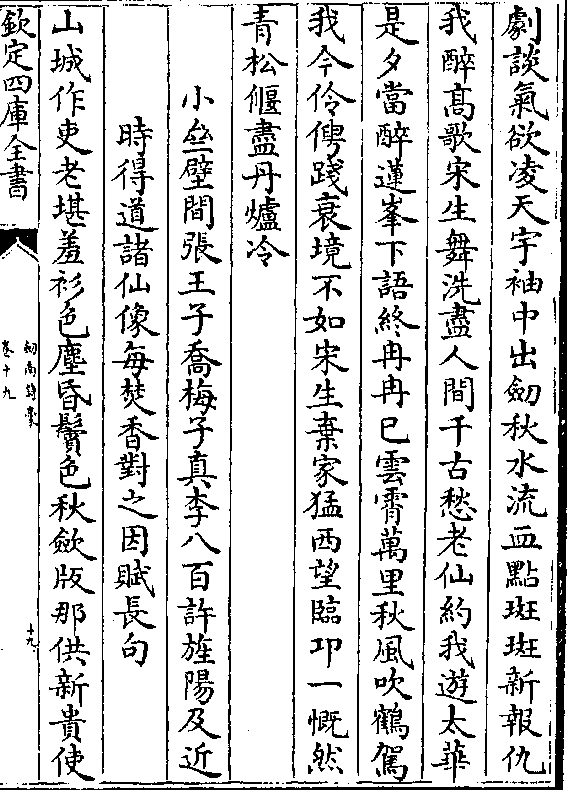 劇談氣欲凌天宇袖中出劒秋水流血點斑斑新報仇
我醉髙歌宋生舞洗盡人間千古愁老仙約我遊太華
是夕當醉蓮峯下語終冉冉已雲霄萬里秋風吹鶴駕
我今伶俜踐衰境不如宋生棄家猛西望臨邛一慨然
青松偃盡丹爐冷
小㘴壁間張王子喬梅子真李八百許旌陽及近
時得道諸仙像每焚香對之因賦長句
山城作吏老堪羞衫色塵昏鬢色秋斂版那供新貴使
欽定四庫全書
劒南詩稾
卷十九
十九